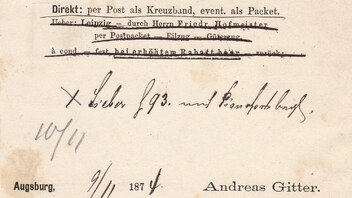 Direkt: per Post als Kreuzband, event. als Packet.
Ueber: Leipzig – durch Herrn Friedr. Hofmeister
per Postpacket – Eilzug – Güterzug
à cond. – fest bei erhöhtem Rabatt baar – zurück:
93. und
10/11
Augsburg, 9/11 1874. Andreas Gitter.